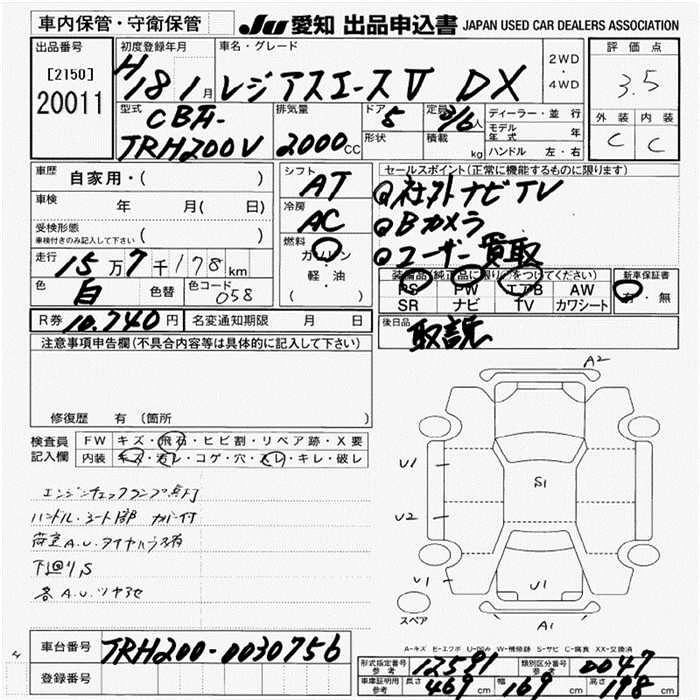 車内保管・守衛保管
JU 愛知 出品申込書 JAPAN USED CAR DEALERS ASSOCIATION
出品番号
[2150]
20011
初度登録年月
H18 1月
車名・グレード
レジアスエースV DX
2WD
・
4WD
評価点
3.5
外装 内装
C C
型式
CBF-
TRH200V
排気量
2000CC
ドア
5
形状
定員 3/6人
積載 kg
ディーラー・並行
モデル年式 年
ハンドル 左・右
車歴 自家用・( )
車検 年 月( 日)
受検形態
車検付きのみ記入して下さい ( )
走行 15万7千178km
色 白 色替 色コード 058
R券 10.740円 名変通知期限 月 日
シフト
AT
冷房
AC
燃料
ガソリン
軽・油
( )
セールスポイント(正常に機能するものに限ります)
社外ナビTV
Bカメラ
ユーザー買取
装備品(純正品に限り○をつけてください)
PS PW エアB AW
SR ナビ TV カワシート
新車保証書
有・無
後日品
取説
注意事項申告欄(不具合内容等は具体的に記入して下さい)
修復歴 有 (箇所 )
検査員
記入欄
FW キズ・飛石・ヒビ割・リペア跡・X要
内装 キズ・汚レ・コゲ・穴・スレ・キレ・破レ
エンジンチェックランプ点灯
ハンドル・シート部 カバー付
荷室A.U.タイヤハウス有
下回りS
各A.U.ツヤアセ
A2
U1
S1
U2
U1
U1
A1
スペア
A-キズ E-エクボ U-凹み W-補修跡 S-サビ C-腐食 XX-交換済
車台番号 TRH200-0030756
登録番号
型式指定番号
参考
12591
類別区分番号
参考
0047
車庫証明用
参考
長さ 469cm 幅 169cm 高さ 198cm